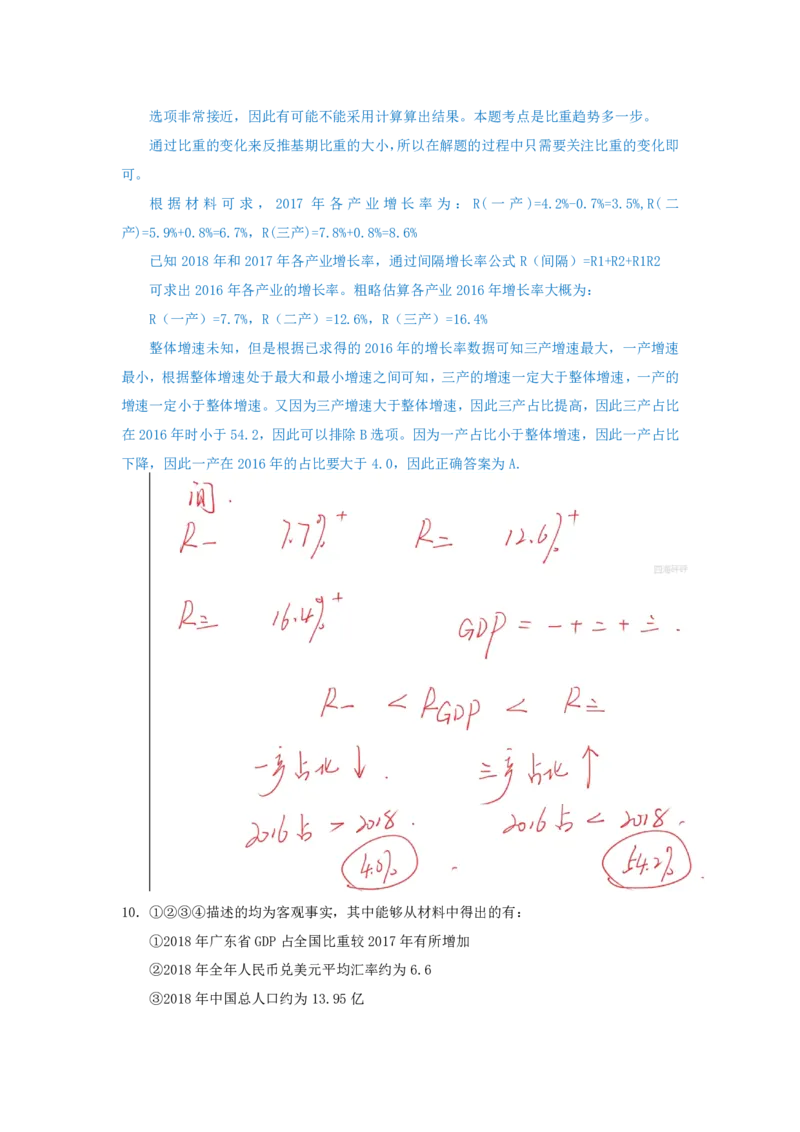 选项非常接近，因此有可能不能采用计算算出结果。本题考点是比重趋势多一步。
通过比重的变化来反推基期比重的大小，所以在解题的过程中只需要关注比重的变化即
可。
根据材料可求，2017 年各产业增长率为：R(一产)=4.2%-0.7%=3.5%,R(二
产)=5.9%+0.8%=6.7%，R(三产)=7.8%+0.8%=8.6%
已知 2018 年和 2017 年各产业增长率，通过间隔增长率公式 R（间隔）=R1+R2+R1R2
可求出 2016 年各产业的增长率。粗略估算各产业 2016 年增长率大概为：
R（一产）=7.7%，R（二产）=12.6%，R（三产）=16.4%
整体增速未知，但是根据已求得的 2016 年的增长率数据可知三产增速最大，一产增速
最小，根据整体增速处于最大和最小增速之间可知，三产的增速一定大于整体增速，一产的
增速一定小于整体增速。又因为三产增速大于整体增速，因此三产占比提高，因此三产占比
在 2016 年时小于 54.2，因此可以排除 B 选项。因为一产占比小于整体增速，因此一产占比
下降，因此一产在 2016 年的占比要大于 4.0，因此正确答案为 A.
间.
R一 7.7%+ R二 12.6%+
R三 16.4%+
GDP = 一+二+三.
R一 < RGDP < R三
一产占比↓. 三产占比↑
2016占 > 2018. 2016占 < 2018.
4.0% 54.2%
10．①②③④描述的均为客观事实，其中能够从材料中得出的有：
①2018 年广东省 GDP 占全国比重较 2017 年有所增加
②2018 年全年人民币兑美元平均汇率约为 6.6
③2018 年中国总人口约为 13.95 亿